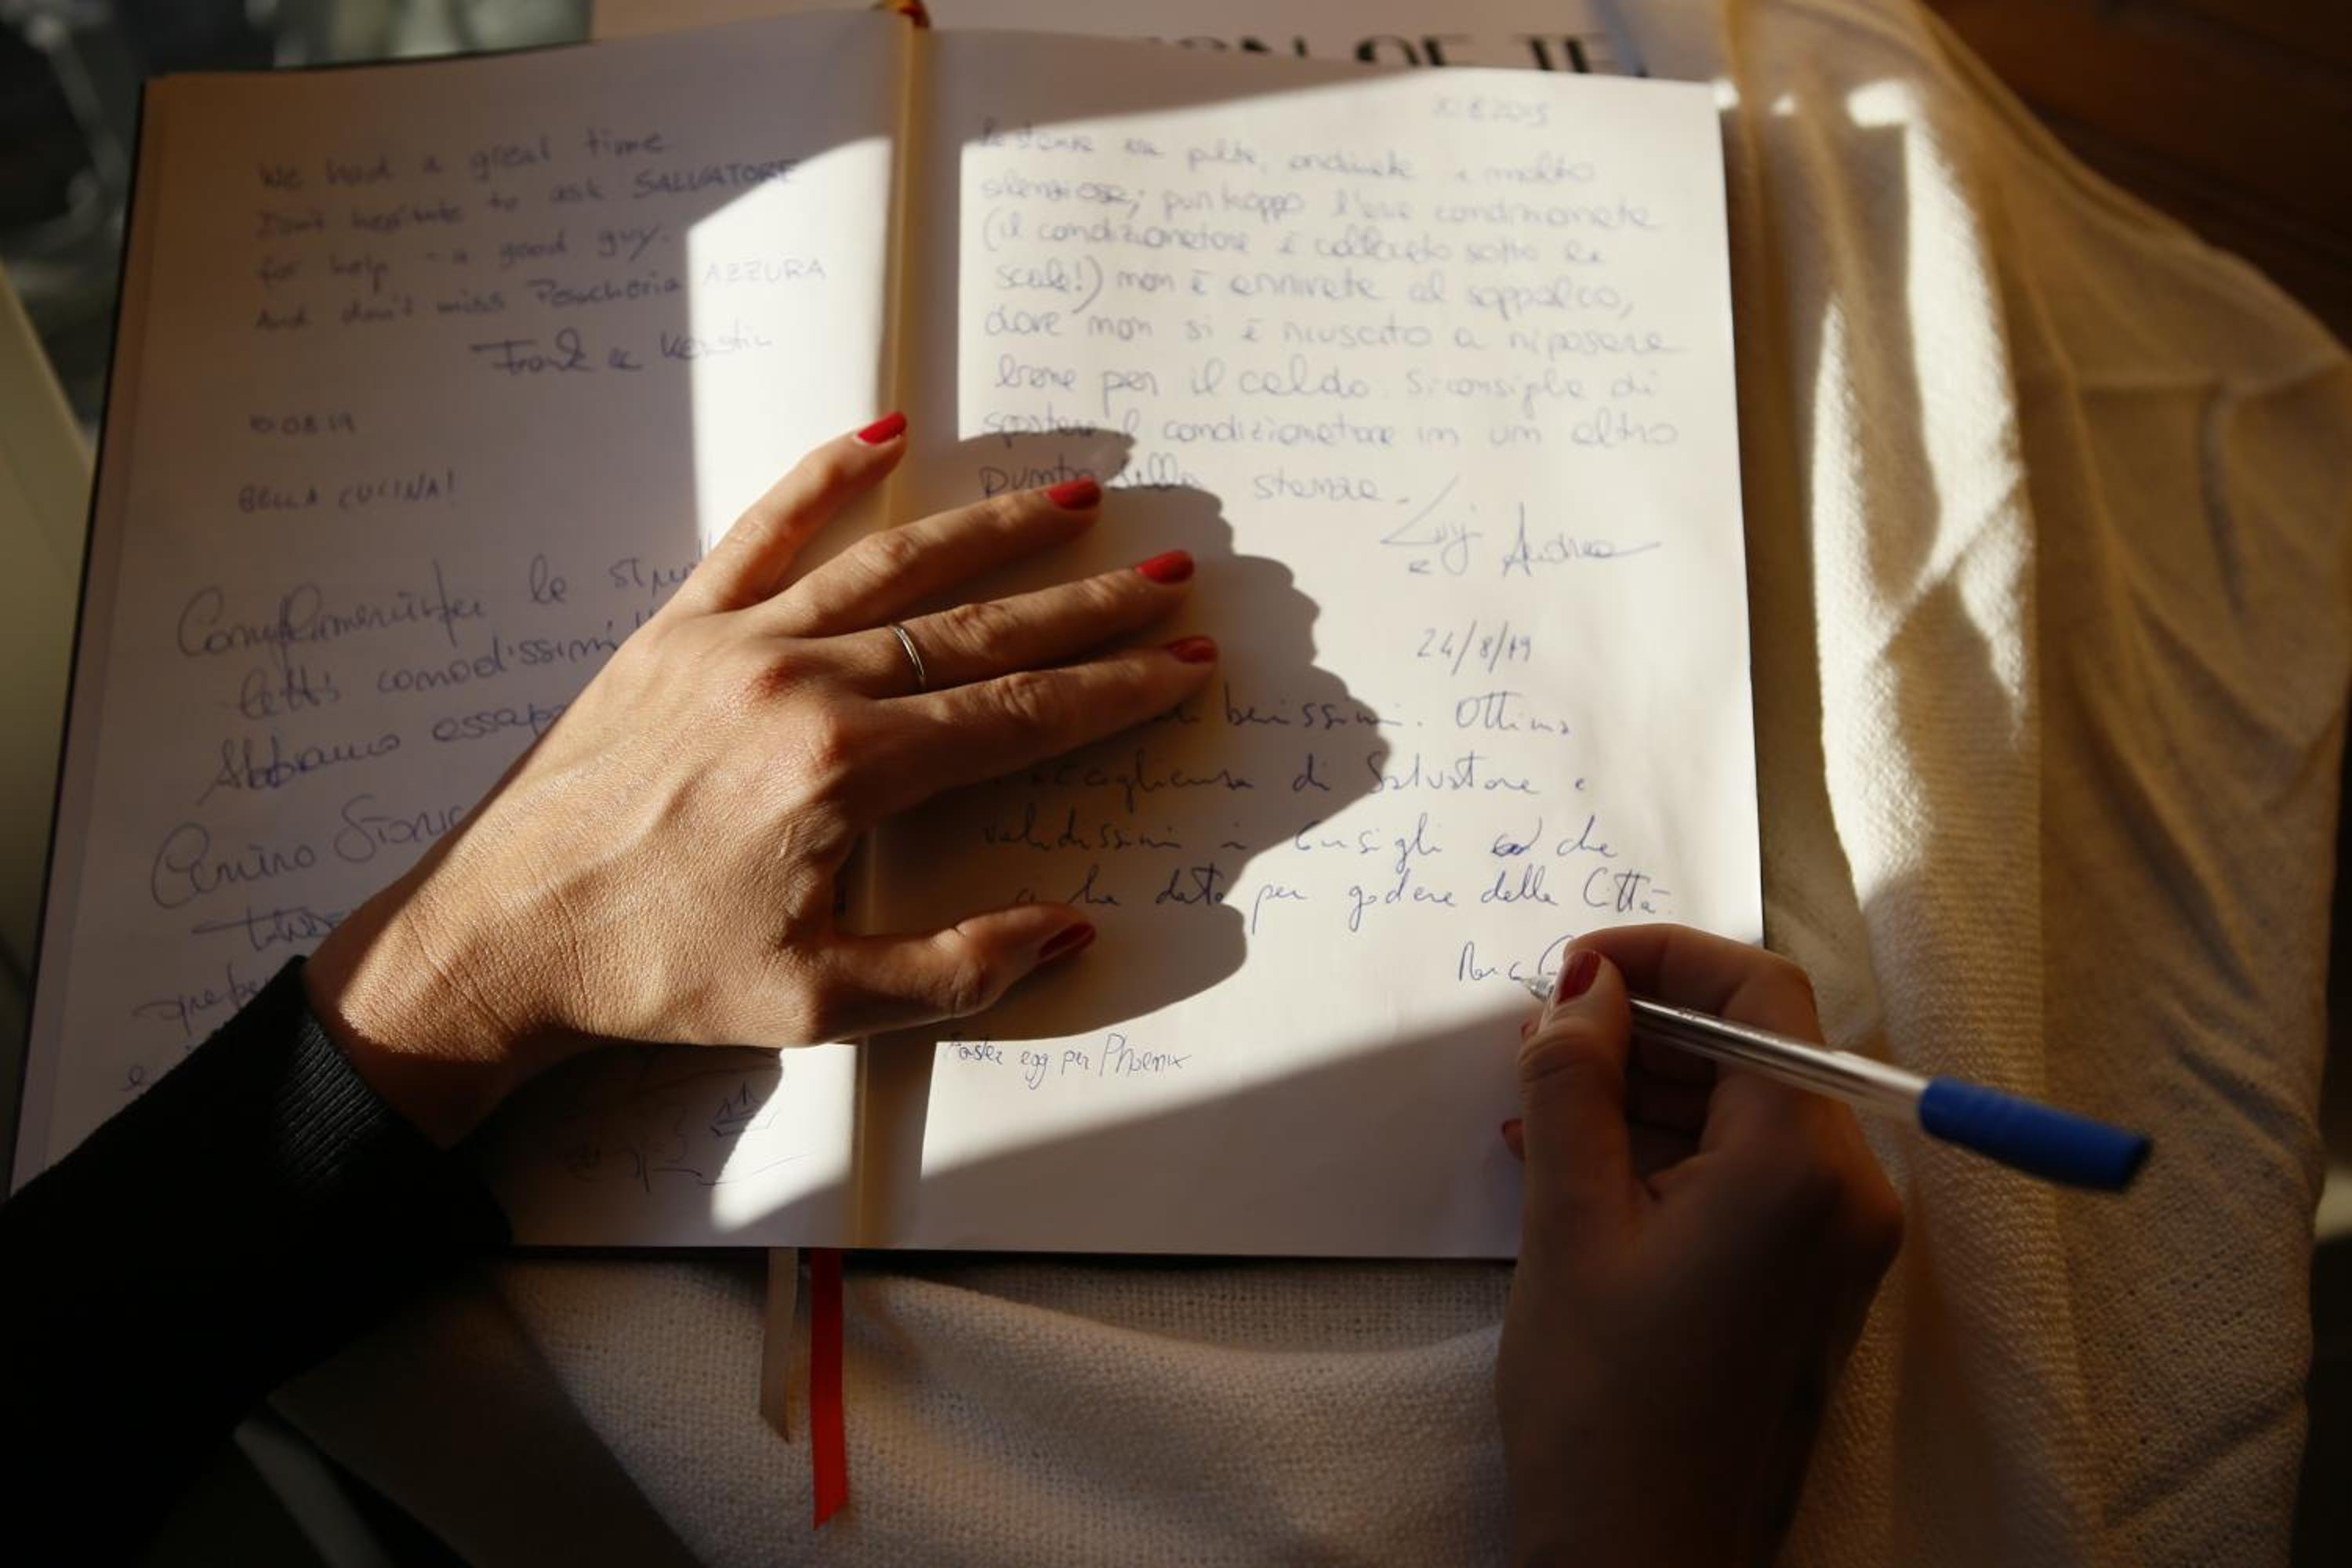 We had a great time
Don't hesitate to ask SALVATORE
for help - a good guy.
And don't miss Pescheria AZZURA
Frank &
08.19
BELLA CUCINA!
le
letti comodissimi
Abbiamo
Centro
ON OF TE
La stanza era pulita, ordinata e molto
silenziosa; purtroppo l'aria condizionata
(il condizionatore è collocato sotto la
scala!) non è arrivata al soppalco,
dove non si è riuscito a riposare
bene per il caldo. Si consiglia di
spostare il condizionatore in un altro
punto della stanza.
e Andrea
24/8/19
benissimo. Ottima
accoglienza di Salvatore e
validissimi i consigli che
ha dato per godere della Città.
egg per Phoenix